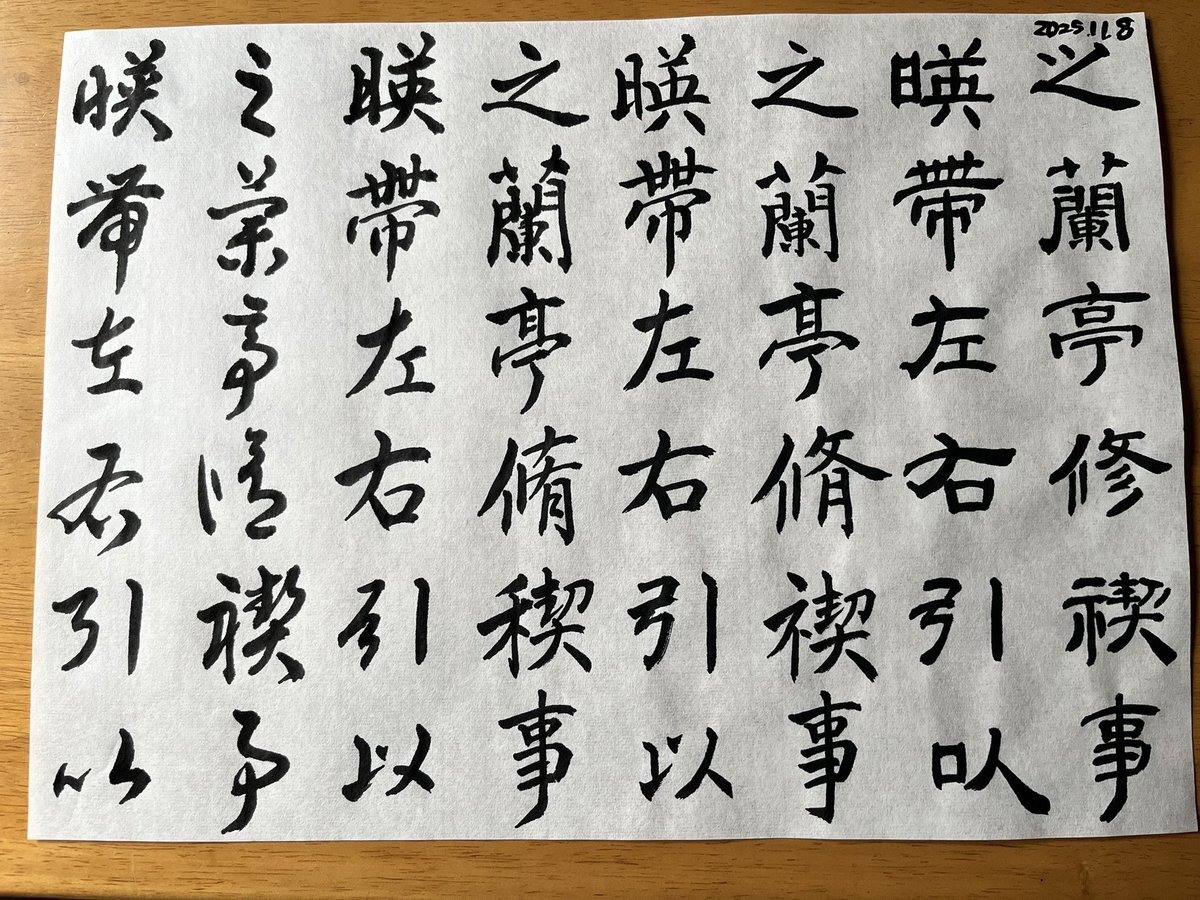 2025.11.8
之蘭亭修禊事
暎帶左右引以
之蘭亭脩禊事
暎帶左右引以
之蘭亭脩稧事
暎帶左右引以
之蘭亭脩禊事
暎帶左右引以